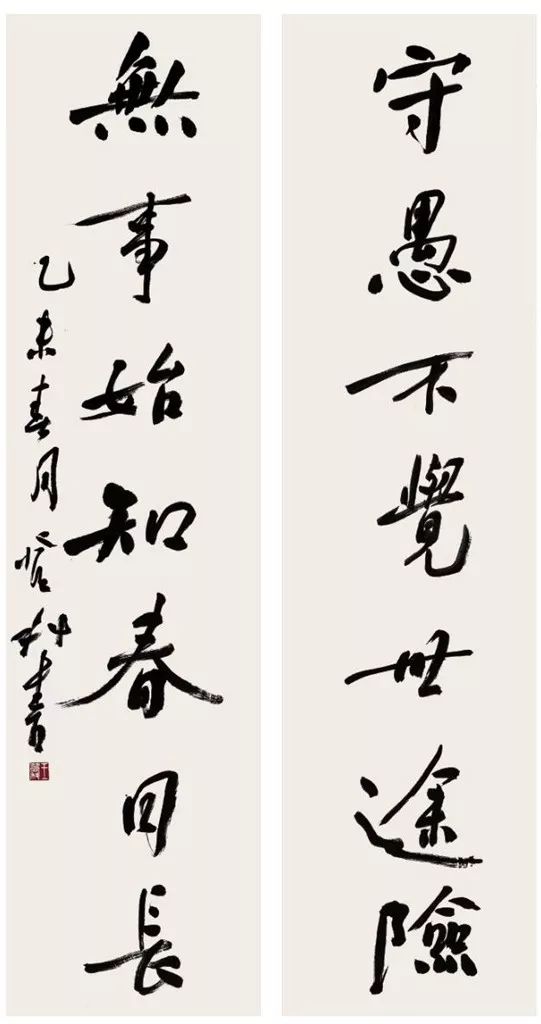 守愚不覺世途險
無事始知春日長
乙未春月登科書